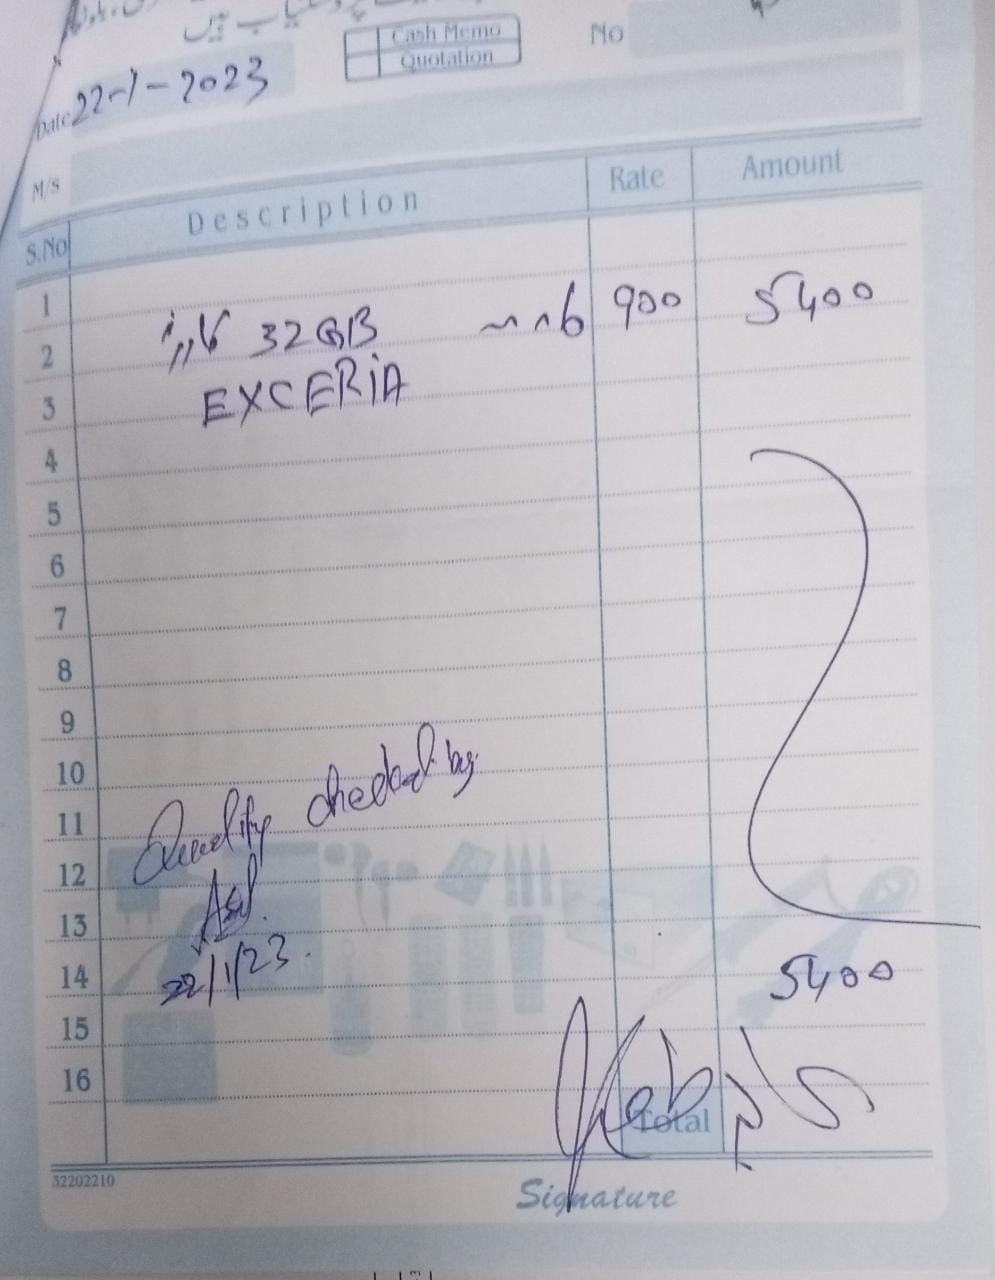 Cash Memo
Quotation
No
Date 22-1-2023
M/s
S.No Description Rate Amount
1
2 32GB 6 900 5400
3 EXCERIA
4
5
6
7
8
9
10
11 Quality checked by
12
13
14 22/1/23. 5400
15
16
Total
32202210
Signature